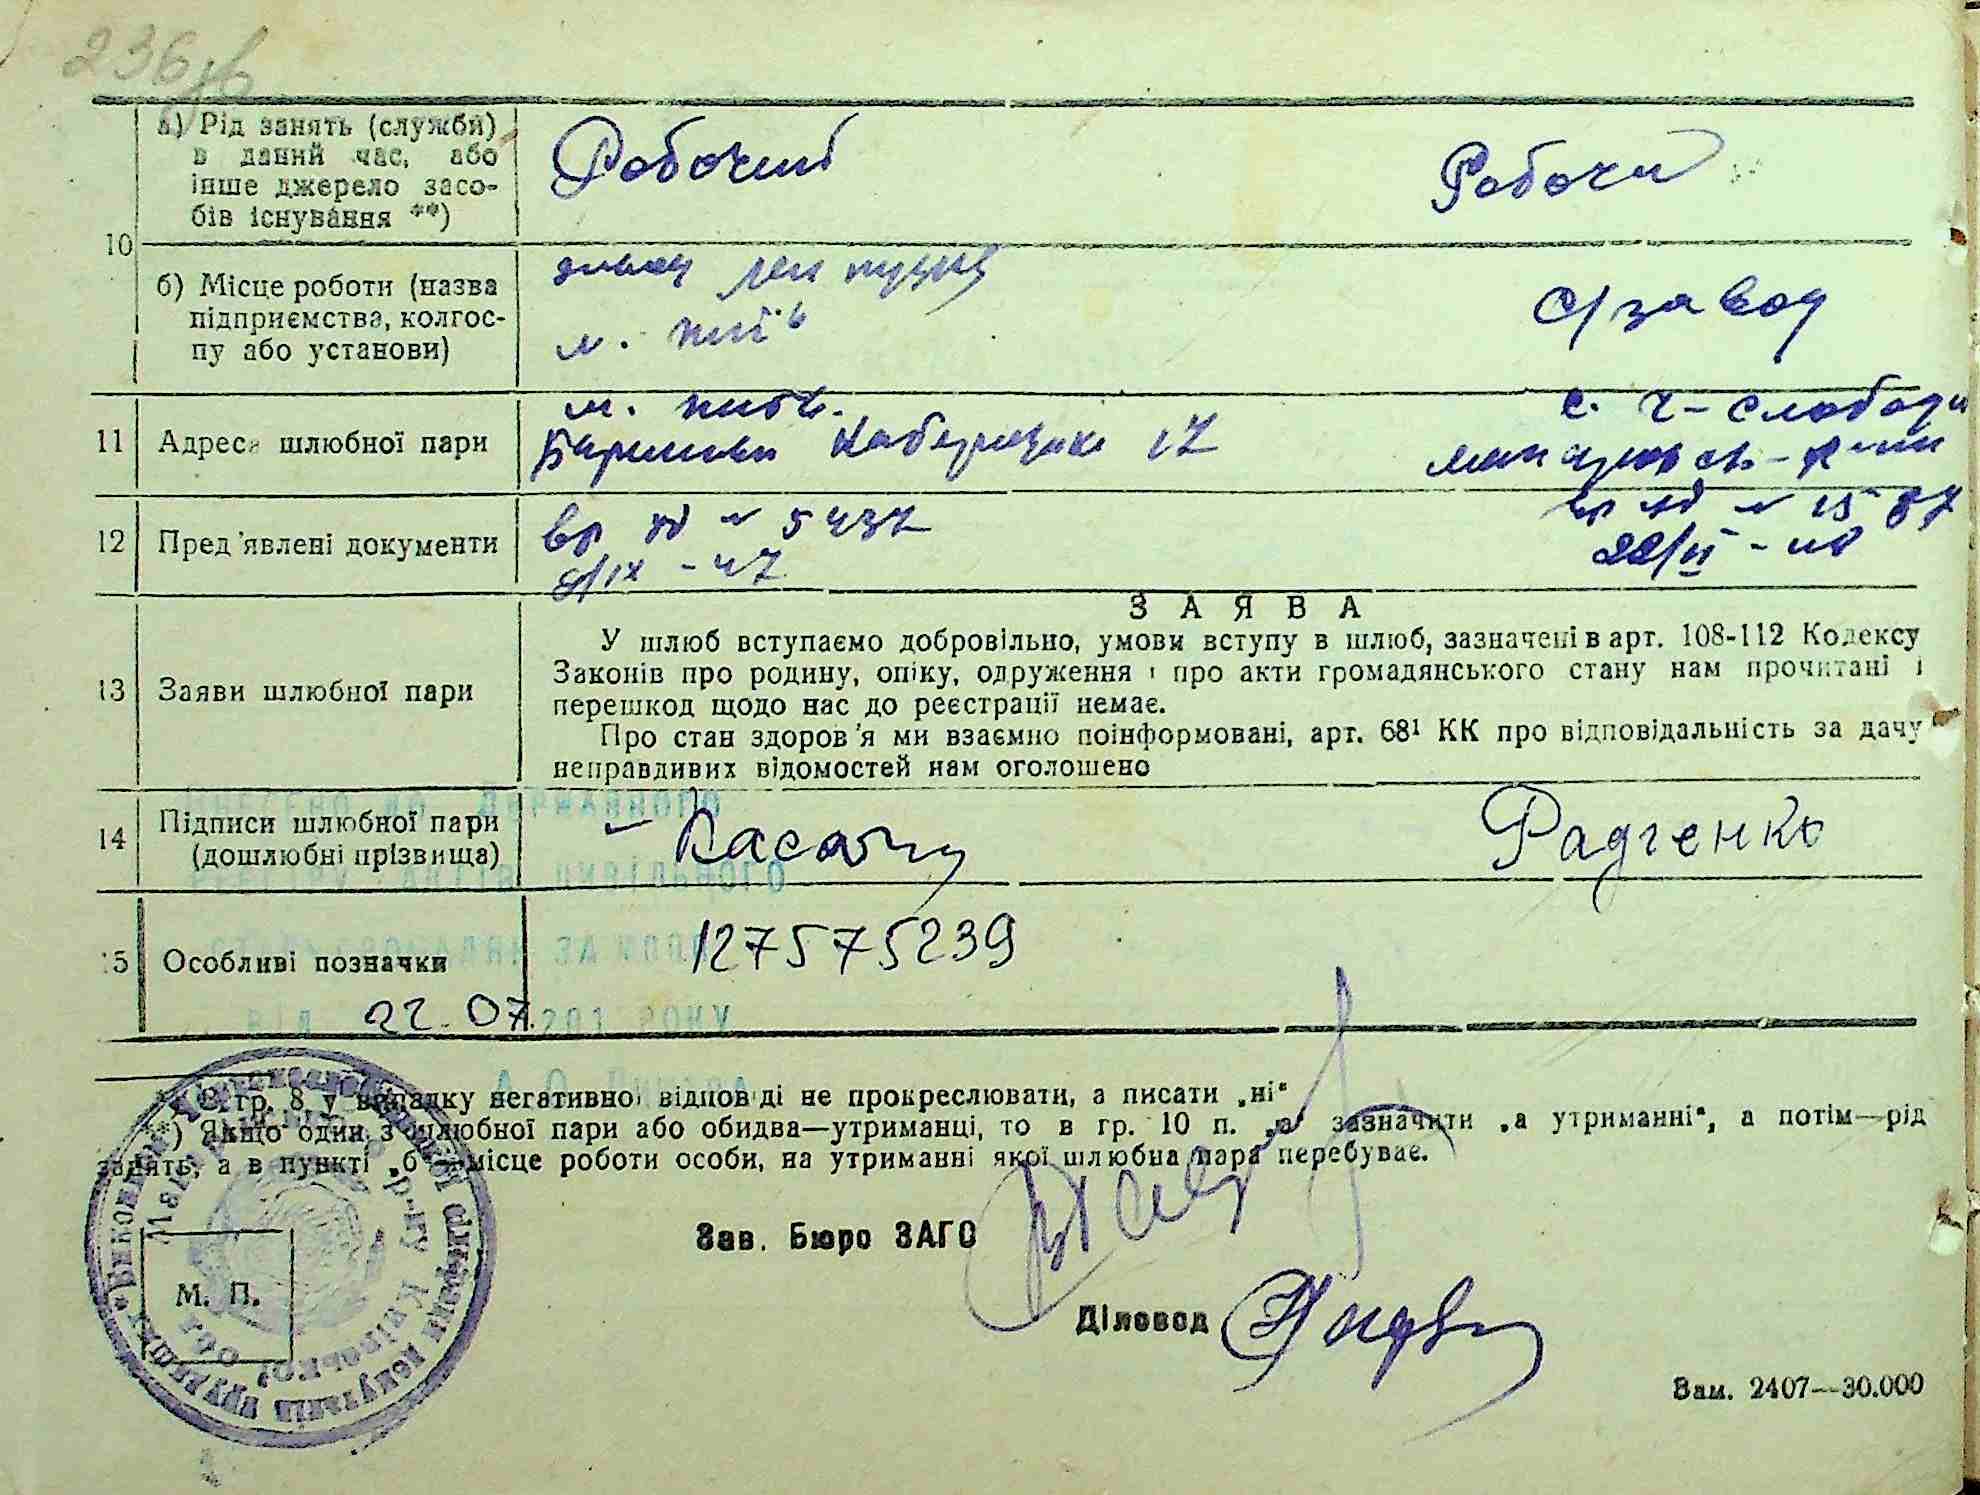 236
10
а) Рід занять (служби)
в даний час, або
інше джерело засо-
бів існування **)
Робочий
Робочи
б) Місце роботи (назва
підприємства, колгос-
пу або установи)
м. Київ
с/завод
11
Адреса шлюбної пари
м. Київ.
17
с. Ч-Слобода
12
Пред'явлені документи
№ 5437
8/IX - 47
№ 1587
22/II - 48
13
Заяви шлюбної пари
ЗАЯВА
У шлюб вступаємо добровільно, умови вступу в шлюб, зазначені в арт. 108-112 Кодексу
Законів про родину, опіку, одруження і про акти громадянського стану нам прочитані і
перешкод щодо нас до реєстрації немає.
Про стан здоров'я ми взаємно поінформовані, арт. 68¹ КК про відповідальність за дачу
неправдивих відомостей нам оголошено
14
Підписи шлюбної пари
(дошлюбні прізвища)
Радченко
ВНЕСЕНО ДО ДЕРЖАВНОГО
РЕЄСТРУ АКТІВ ЦИВІЛЬНОГО
СТАНУ ГРОМАДЯН ЗА
15
Особливі позначки
127575239
ВІД 22.07.201 РОКУ
*) В гр. 8 у випадку негативної відповіді не прокреслювати, а писати „ні“
**) Якщо один з шлюбної пари або обидва—утриманці, то в гр. 10 п. „а“ зазначити „а утриманні“, а потім—рід
занять, а в пункті „б“ місце роботи особи, на утриманні якої шлюбна пара перебуває.
Зав. Бюро ЗАГС
М. П.
Діловод
Зам. 2407—30.000